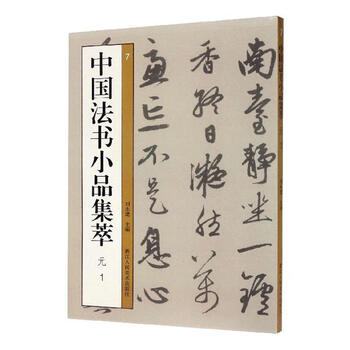 7
中国法书小品集萃
元 1
刘永建 主编
浙江人民美术出版社
南臺静坐一鑪
香終日凝然萬
慮亡不是息心